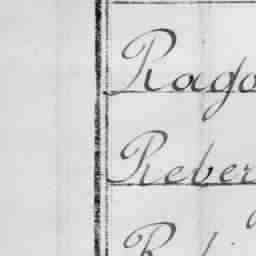 Rago
Reber